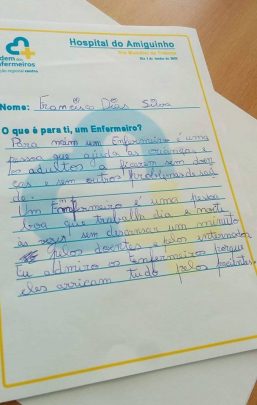 Hospital do Amiguinho
Dia 1 de Junho de
dem dos
nfermeiros
cção regional centro
Nome: Francisco Dias Silva
O que é para ti, um Enfermeiro?
Para mim um Enfermeiro é uma
pessoa que ajuda as crianças e
os adultos a ficarem sem doen
ças e sem outros problemas de saú
de.
Um Enfermeiro é uma pessoa
que trabalha dia e noite
às vezes sem descansar um minuto
pelos doentes e pelos internados
Eu admiro os Enfermeiros porque
eles arriscam tudo pelos pacientes.